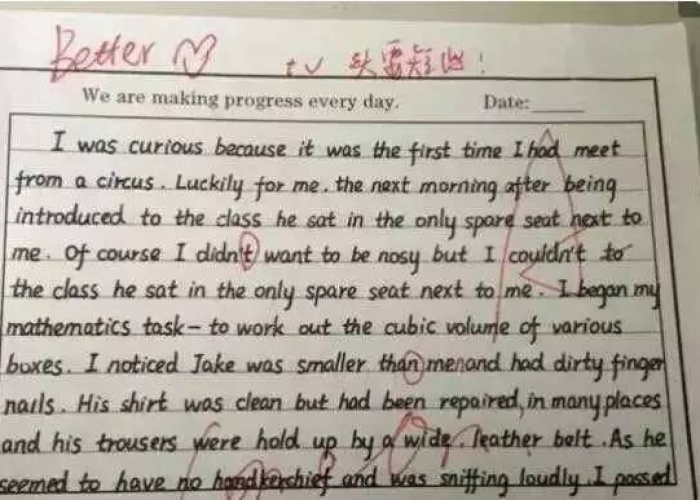 Better
tv 头要短出!
We are making progress every day. Date:
I was curious because it was the first time I had meet
from a circus. Luckily for me. the next morning after being
introduced to the class he sat in the only spare seat next to
me. Of course I didn't want to be nosy but I couldn't to
the class he sat in the only spare seat next to me. I began my
mathematics task- to work out the cubic volume of various
boxes. I noticed Jake was smaller than menand had dirty finger
nails. His shirt was clean but had been repaired, in many places
and his trousers were hold up by a wide. leather belt. As he
seemed to have no handkerchief and was sniffing loudly. I passed